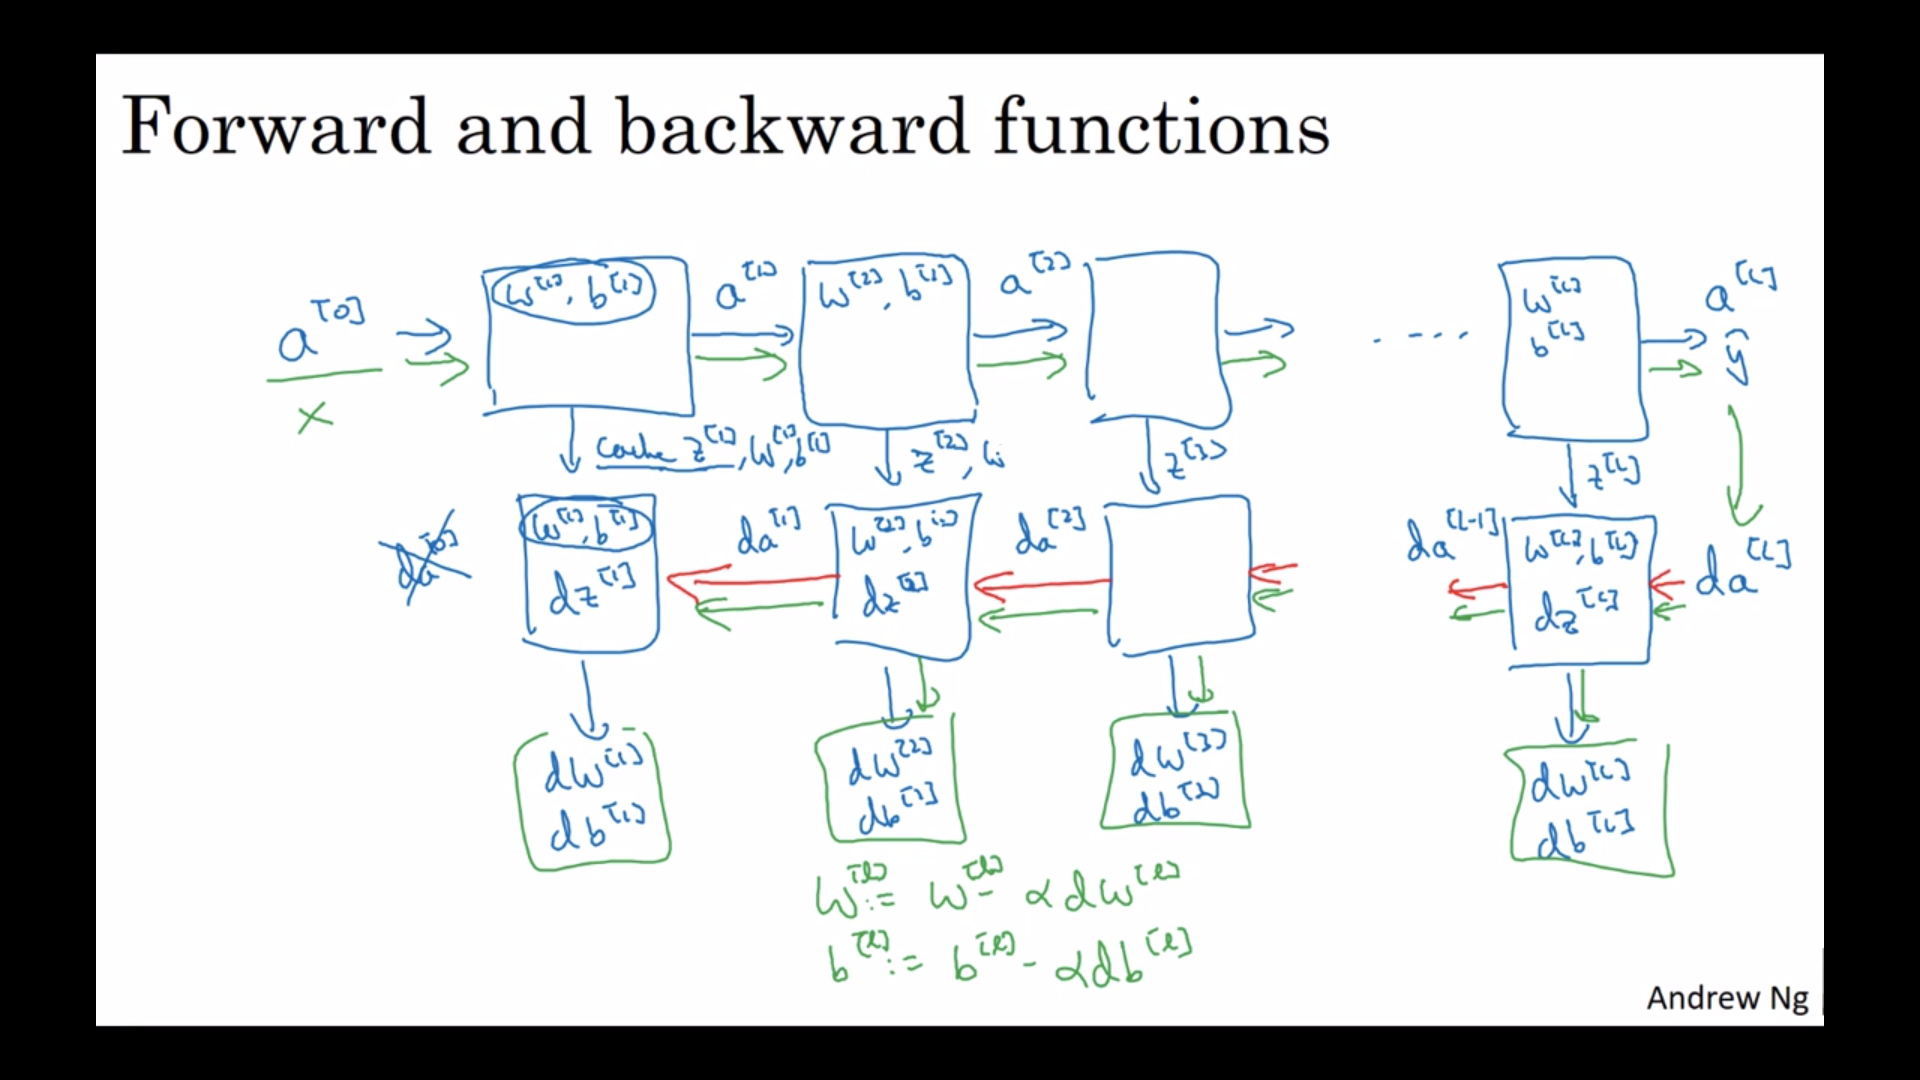 Forward and backward functions
a^[0] w^[1], b^[1] a^[1] w^[2], b^[2] a^[2] .... w^[L] a^[L]
b^[L] ŷ
X
cache z^[1], w^[1], b^[1] z^[2], w z^[3] z^[L]
da^[0] w^[1], b^[1] da^[1] w^[2], b^[2] da^[2] da^[L-1] w^[L], b^[L] da^[L]
dz^[1] dz^[2] dz^[L]
dw^[1] dw^[2] dw^[3] dw^[L]
db^[1] db^[2] db^[3] db^[L]
w^[l] := w^[l] - α dw^[l]
b^[l] := b^[l] - α db^[l]
Andrew Ng